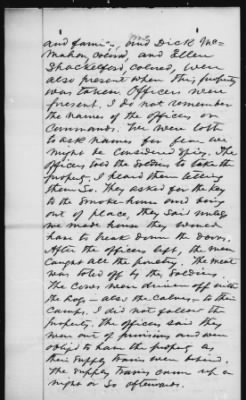 and family, and Dick Mc=
Mahon, colored, and Ellen
Shackelford, colored, were
also present when this property
was taken. Officers were
present. I do not remember
the names of the officers or
commands. We were loth
to ask names for fear we
might be considered spies. The
officers told the soldiers to take the
property. I heard them telling
them so. They asked for the key
to the smoke-house and being
out of place, they said unless
we made haste they would
have to break down the doors.
After the officers left, the men
caught all the poultry. The meat
was toted off by the soldiers.
The cows were driven off with
the hogs – also the calves, – to their
camps. I did not follow the
property. The officers said they
were out of provisions and were
obliged to have the property as
their supply trains were behind.
The supply trains came up a
night or so afterwards.